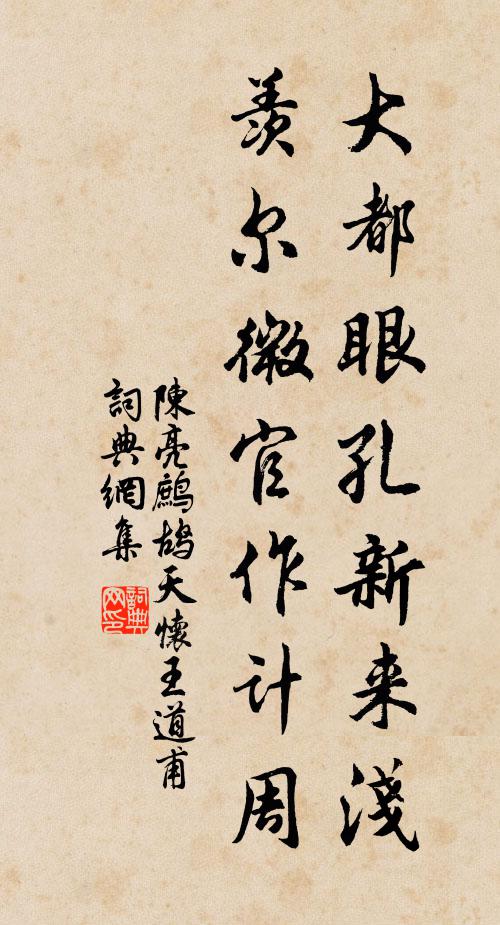 大都眼孔新来淺
羨尔微官作计周
陳亮鷓鴣天懷王道甫
詞典網集
詞典
网印